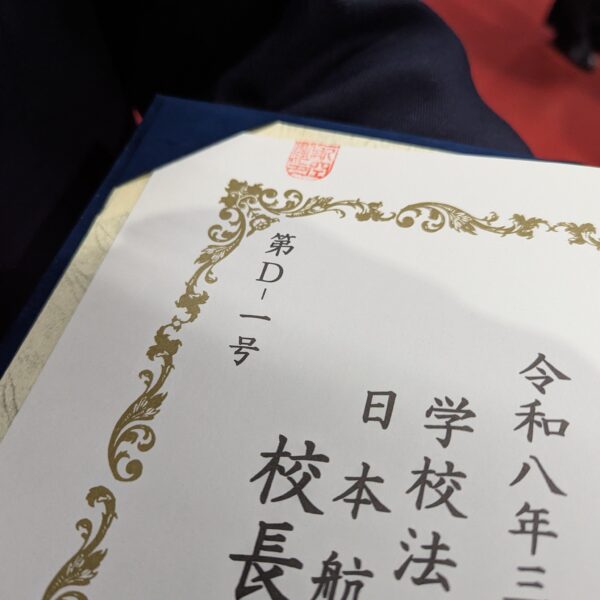 令和八年三
学校法
日本航
校長
第D-一号